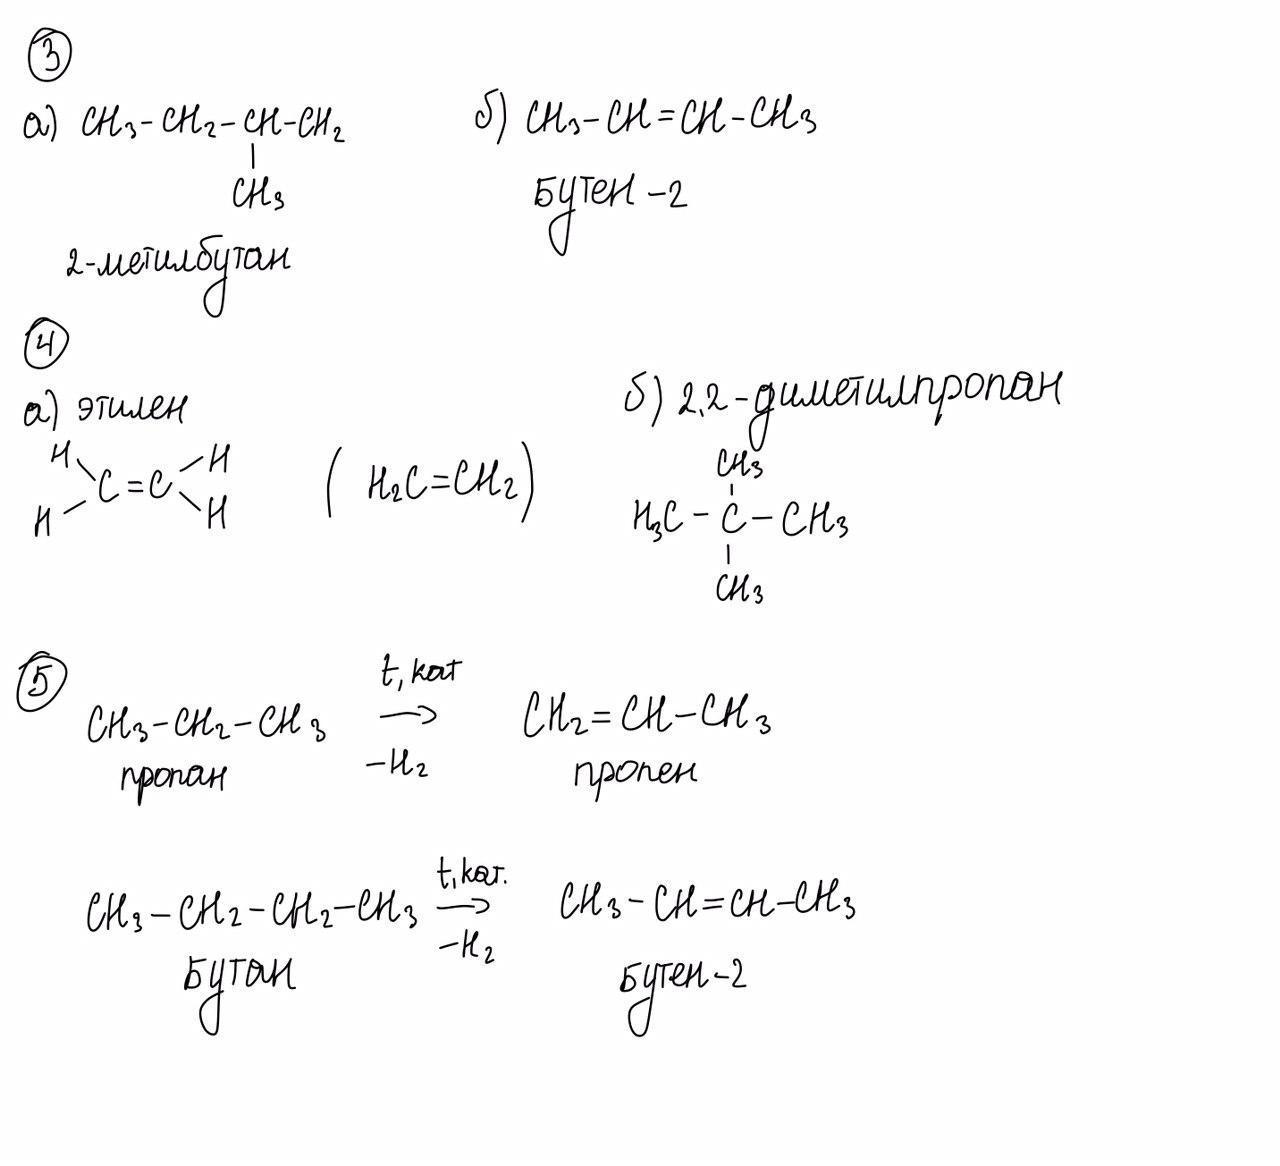 3
а) CH3-CH2-CH-CH2
|
CH3
2-метилбутан
б) CH3-CH=CH-CH3
Бутен-2
4
а) этилен
H H
C=C
H H
(H2C=CH2)
б) 2,2-диметилпропан
CH3
H3C-C-CH3
CH3
5
t, кат
CH3-CH2-CH3 → CH2=CH-CH3
-H2
пропан пропен
t, кат.
CH3-CH2-CH2-CH3 → CH3-CH=CH-CH3
-H2
Бутан Бутен-2